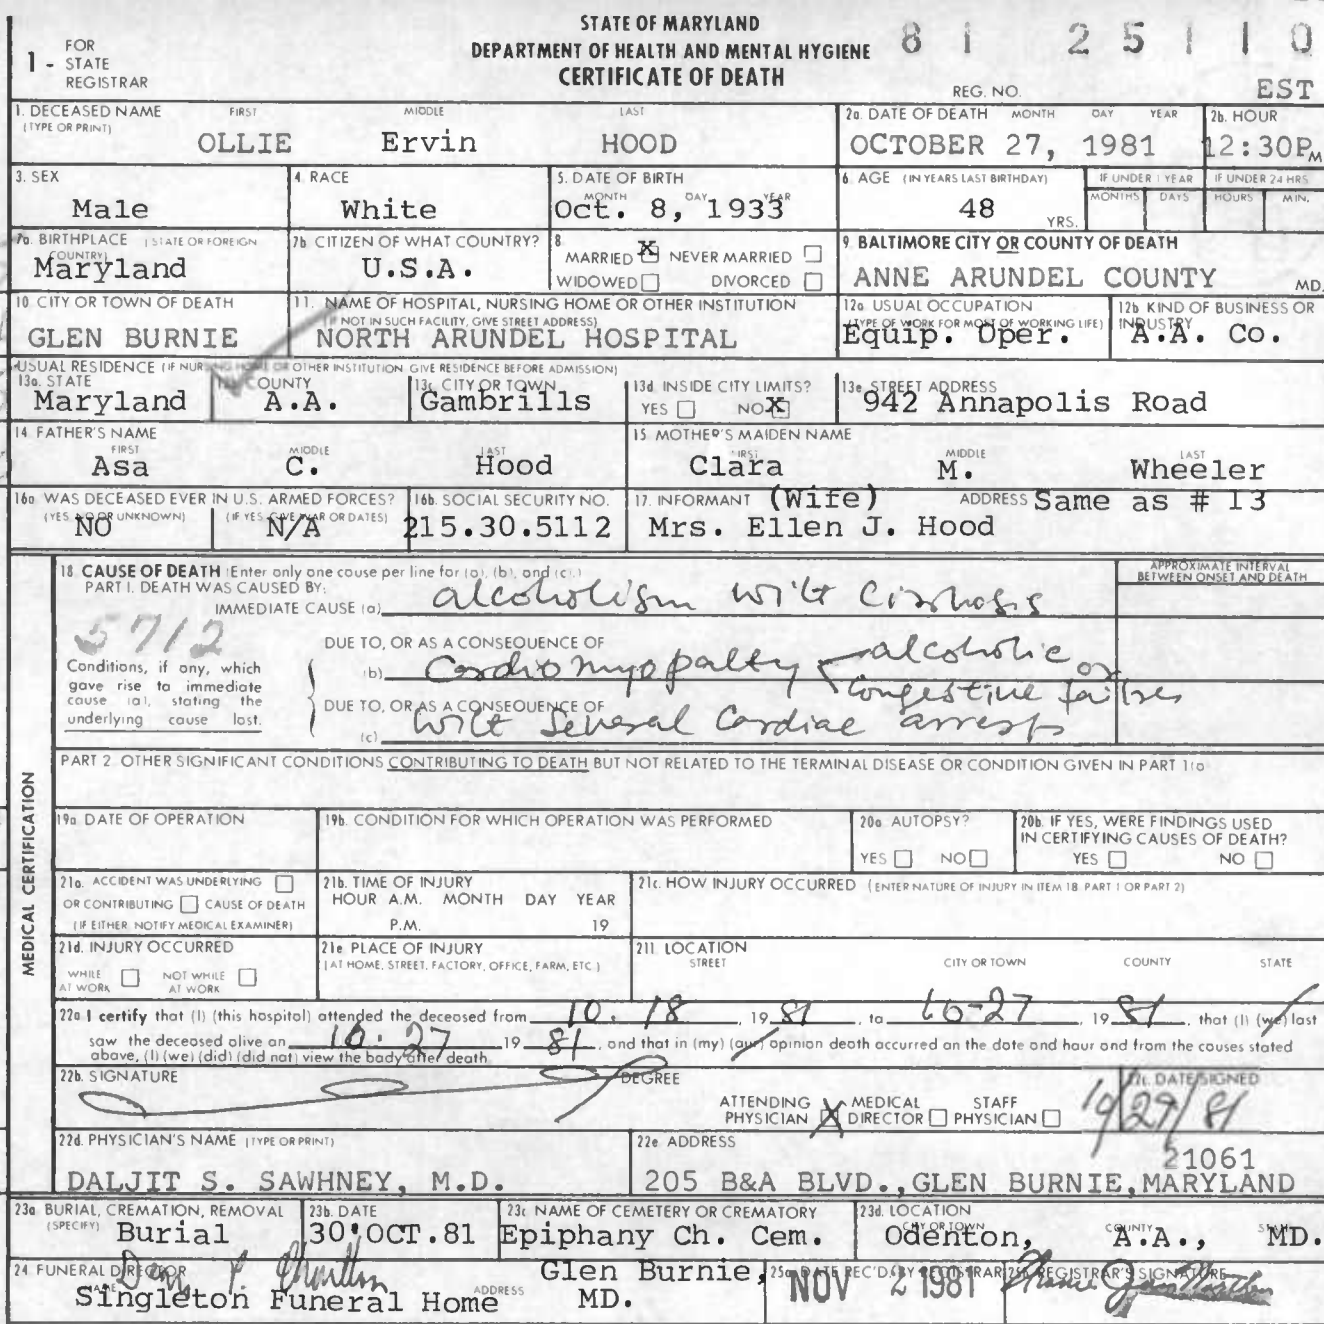 STATE OF MARYLAND
DEPARTMENT OF HEALTH AND MENTAL HYGIENE
CERTIFICATE OF DEATH
1 - FOR STATE REGISTRAR
81 25110
REG. NO.
EST
1. DECEASED NAME (TYPE OR PRINT) FIRST MIDDLE LAST
OLLIE Ervin HOOD
2a. DATE OF DEATH MONTH DAY YEAR
OCTOBER 27, 1981
2b. HOUR
12:30P M
3. SEX
Male
4. RACE
White
5. DATE OF BIRTH MONTH DAY YEAR
Oct. 8, 1933
6. AGE (IN YEARS LAST BIRTHDAY)
48 YRS.
IF UNDER 1 YEAR MONTHS DAYS
IF UNDER 24 HRS HOURS MIN.
7a. BIRTHPLACE (STATE OR FOREIGN COUNTRY)
Maryland
7b. CITIZEN OF WHAT COUNTRY?
U.S.A.
8. MARRIED X NEVER MARRIED
WIDOWED DIVORCED
9. BALTIMORE CITY OR COUNTY OF DEATH
ANNE ARUNDEL COUNTY MD.
10. CITY OR TOWN OF DEATH
GLEN BURNIE
11. NAME OF HOSPITAL, NURSING HOME OR OTHER INSTITUTION
(IF NOT IN SUCH FACILITY, GIVE STREET ADDRESS)
NORTH ARUNDEL HOSPITAL
12a. USUAL OCCUPATION
(TYPE OF WORK FOR MOST OF WORKING LIFE)
Equip. Oper.
12b. KIND OF BUSINESS OR INDUSTRY
A.A. Co.
USUAL RESIDENCE (IF NURSING HOME OR OTHER INSTITUTION GIVE RESIDENCE BEFORE ADMISSION)
13a. STATE
Maryland
COUNTY
A.A.
13c. CITY OR TOWN
Gambrills
13d. INSIDE CITY LIMITS?
YES NO X
13e. STREET ADDRESS
942 Annapolis Road
14. FATHER'S NAME FIRST MIDDLE LAST
Asa C. Hood
15. MOTHER'S MAIDEN NAME FIRST MIDDLE LAST
Clara M. Wheeler
16a. WAS DECEASED EVER IN U.S. ARMED FORCES?
(YES, NO OR UNKNOWN) (IF YES, GIVE WAR OR DATES)
NO N/A
16b. SOCIAL SECURITY NO.
215.30.5112
17. INFORMANT (Wife) ADDRESS Same as # 13
Mrs. Ellen J. Hood
MEDICAL CERTIFICATION
18. CAUSE OF DEATH (Enter only one cause per line for (a), (b), and (c).)
PART I. DEATH WAS CAUSED BY:
APPROXIMATE INTERVAL BETWEEN ONSET AND DEATH
IMMEDIATE CAUSE (a) alcoholism with Cirrhosis
5712
Conditions, if any, which gave rise to immediate cause (a), stating the underlying cause last.
DUE TO, OR AS A CONSEQUENCE OF
(b) Cardiomyopathy alcoholic or
congestive failures
DUE TO, OR AS A CONSEQUENCE OF
(c) with several cardiac arrests
PART 2. OTHER SIGNIFICANT CONDITIONS CONTRIBUTING TO DEATH BUT NOT RELATED TO THE TERMINAL DISEASE OR CONDITION GIVEN IN PART 1(a)
19a. DATE OF OPERATION
19b. CONDITION FOR WHICH OPERATION WAS PERFORMED
20a. AUTOPSY?
YES NO
20b. IF YES, WERE FINDINGS USED IN CERTIFYING CAUSES OF DEATH?
YES NO
21a. ACCIDENT WAS UNDERLYING
OR CONTRIBUTING CAUSE OF DEATH
(IF EITHER, NOTIFY MEDICAL EXAMINER)
21b. TIME OF INJURY
HOUR A.M. MONTH DAY YEAR
P.M. 19
21c. HOW INJURY OCCURRED (ENTER NATURE OF INJURY IN ITEM 18 PART 1 OR PART 2)
21d. INJURY OCCURRED
WHILE AT WORK NOT WHILE AT WORK
21e. PLACE OF INJURY
(AT HOME, STREET, FACTORY, OFFICE, FARM, ETC.)
21f. LOCATION
STREET CITY OR TOWN COUNTY STATE
22a. I certify that (I) (this hospital) attended the deceased from 10. 18, 1981, to 10-27, 1981, that (I) (we) last
saw the deceased alive on 10. 27 1981, and that in (my) (our) opinion death occurred on the date and hour and from the causes stated
above, (I) (we) (did) (did not) view the body after death
22b. SIGNATURE DEGREE
ATTENDING PHYSICIAN X MEDICAL DIRECTOR STAFF PHYSICIAN
22c. DATE SIGNED
10/29/81
22d. PHYSICIAN'S NAME (TYPE OR PRINT)
DALJIT S. SAWHNEY, M.D.
22e. ADDRESS
21061
205 B&A BLVD., GLEN BURNIE, MARYLAND
23a. BURIAL, CREMATION, REMOVAL (SPECIFY)
Burial
23b. DATE
30 OCT.81
23c. NAME OF CEMETERY OR CREMATORY
Epiphany Ch. Cem.
23d. LOCATION CITY OR TOWN COUNTY STATE
Odenton, A.A., MD.
24. FUNERAL DIRECTOR NAME ADDRESS
Singleton Funeral Home Glen Burnie, MD.
25a. DATE REC'D. BY REGISTRAR
NOV 2 1981
25b. REGISTRAR'S SIGNATURE